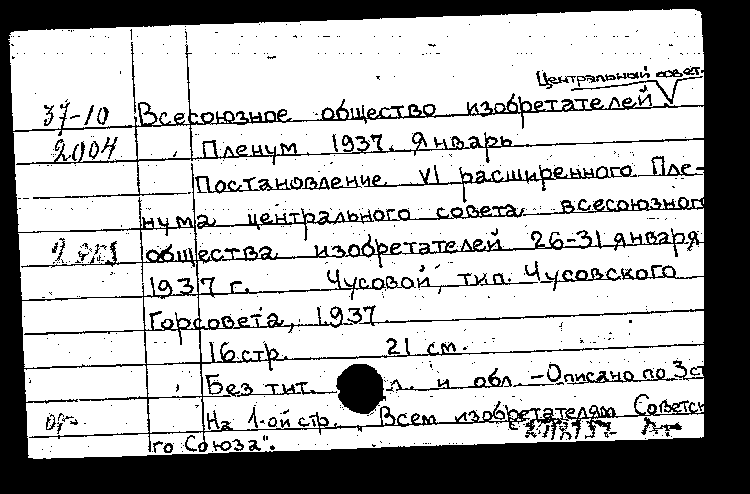 Центральный совет.
37-10 Всесоюзное общество изобретателей
2004 Пленум 1937. Январь
Постановление VI расширенного Пле-
нума центрального совета всесоюзного
2 экз общества изобретателей 26-31 января
1937 г. Чусовой, тип. Чусовского
Горсовета, 1937
16 стр. 21 см.
Без тит. л. и обл. - Описано по 3 ст
На 1-ой стр. „Всем изобретателям Советск
го Союза".